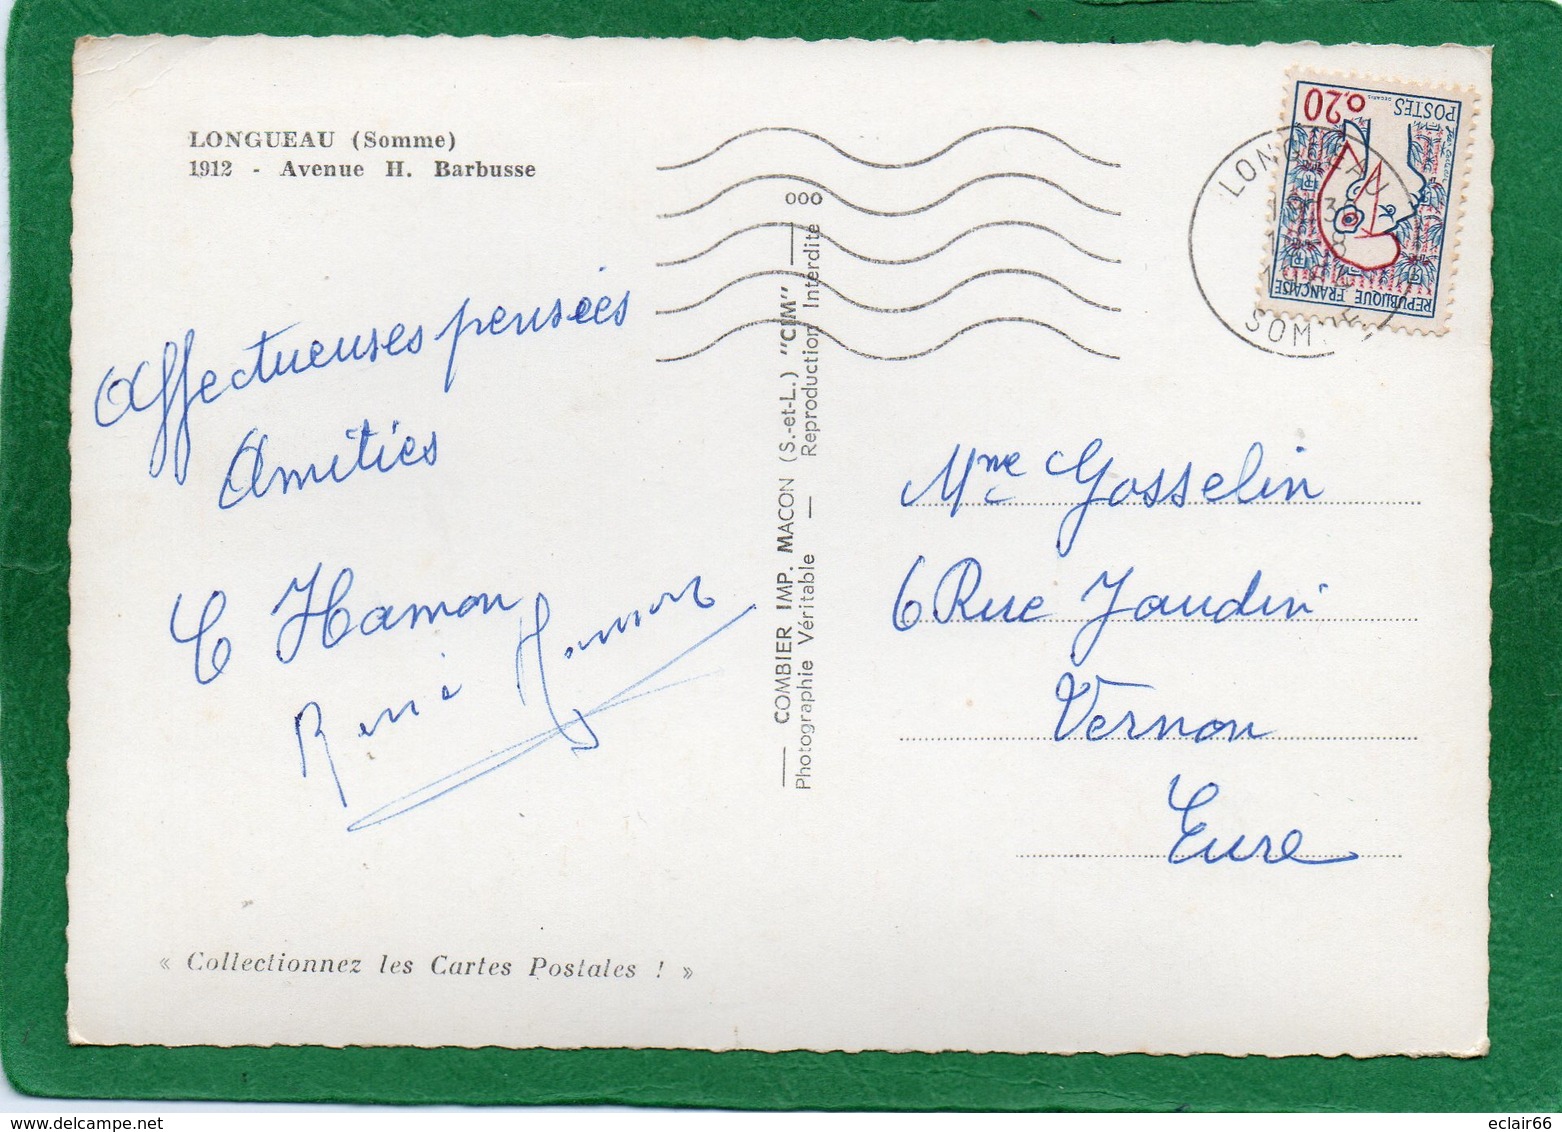 LONGUEAU (Somme)
1912 - Avenue H. Barbusse
Affectueuses pensées
Amitiés
C Hamon
René Hamon
« Collectionnez les Cartes Postales ! »
COMBIER IMP. MACON (S.-et-L.) "CIM"
Photographie Véritable — Reproduction Interdite
000
0,20
POSTES
DECARIS
REPUBLIQUE FRANÇAISE
LONGUEAU
SOMME
Mme Gosselin
6 Rue Jaudin
Vernon
Eure
eclair66